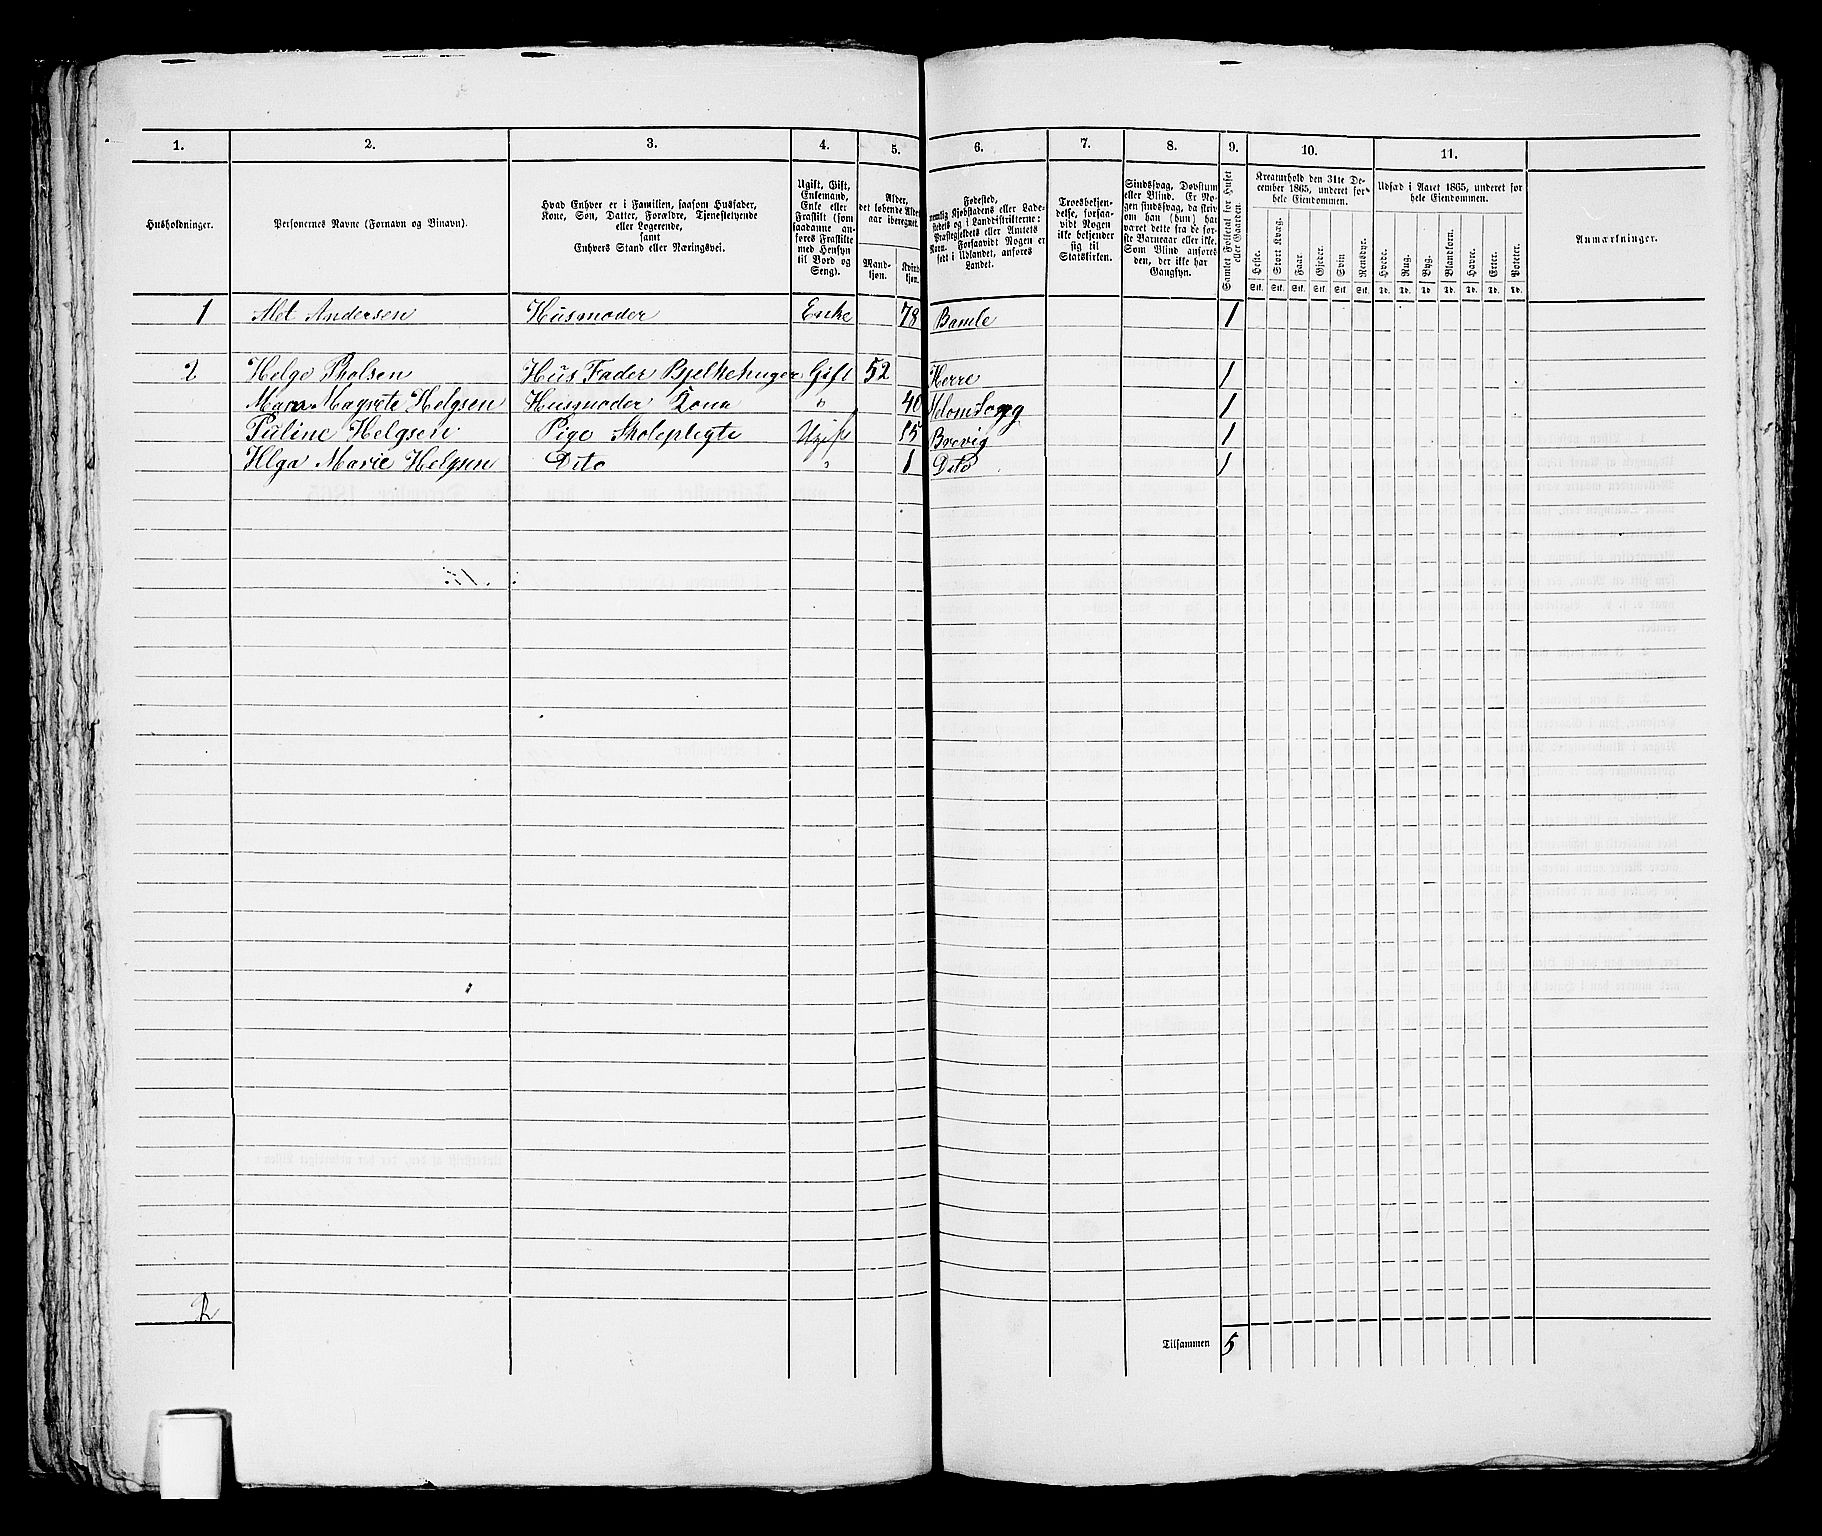 1. 2. 3. 4. 5. 6. 7. 8. 9. 10. 11.
Husholdninger.
Personernes Navne (Fornavn og Tilnavn).
Hvad Enhver er i Familien, saasom Husfader,
Kone, Søn, Datter, Forældre, Tjenestetyende
eller Logerende,
samt
Enhvers Stand eller Næringsvei.
Ugift, Gift,
Enkemand,
Enke eller
Fraskilt (som
saadanne an-
føres Fraskilte
med Hensyn
til Bord og
Seng).
Alder,
det løbende Alders-
aar iberegnet.
Mand-
kjøn.
Kvind-
kjøn.
Fødested,
nemlig Kjøbstadens eller Lade-
stedets og i Landdistrikterne:
Præstegjeldets eller Amtets
Navn. Forsaavidt Nogen er
født i Udlandet, anføres
Landet.
Troesbekjen-
delse, forsaa-
vidt Nogen
ikke bekjender
sig til
Statskirken.
Sindssvag, Døvstum
eller Blind. Er No-
gen sindssvag, da skriv
om han (hun) har
været dette fra de før-
ste Barneaar eller ikke.
Som Blind anføres
den, der ikke har
Gangsyn.
Samlet Folketal for Huset
eller Gaarden.
Kreaturhold den 31te De-
cember 1865, underet for
hele Eiendommen.
Heste. Stort Kvæg. Faar. Gjeder. Svin Rensdyr.
Stk. Stk. Stk. Stk. Stk. Stk.
Udsæd i Aaret 1865, underet for
hele Eiendommen.
Hvede. Rug. Byg. Blandkorn. Havre. Erter. Poteter.
Td. Td. Td. Td. Td. Td. Td.
Anmærkninger.
1 Andersen Husmoder Enke 78 Bamle 1
2 Helge Husfader Gift 52 Herre 1
Helgsen Husmoder Kona " 40 1
Helgsen Pige Skolepligte Ugift 15 Brevig 1
Marie Helgsen Dito " 1 Dito 1
2
Tilsammen 5